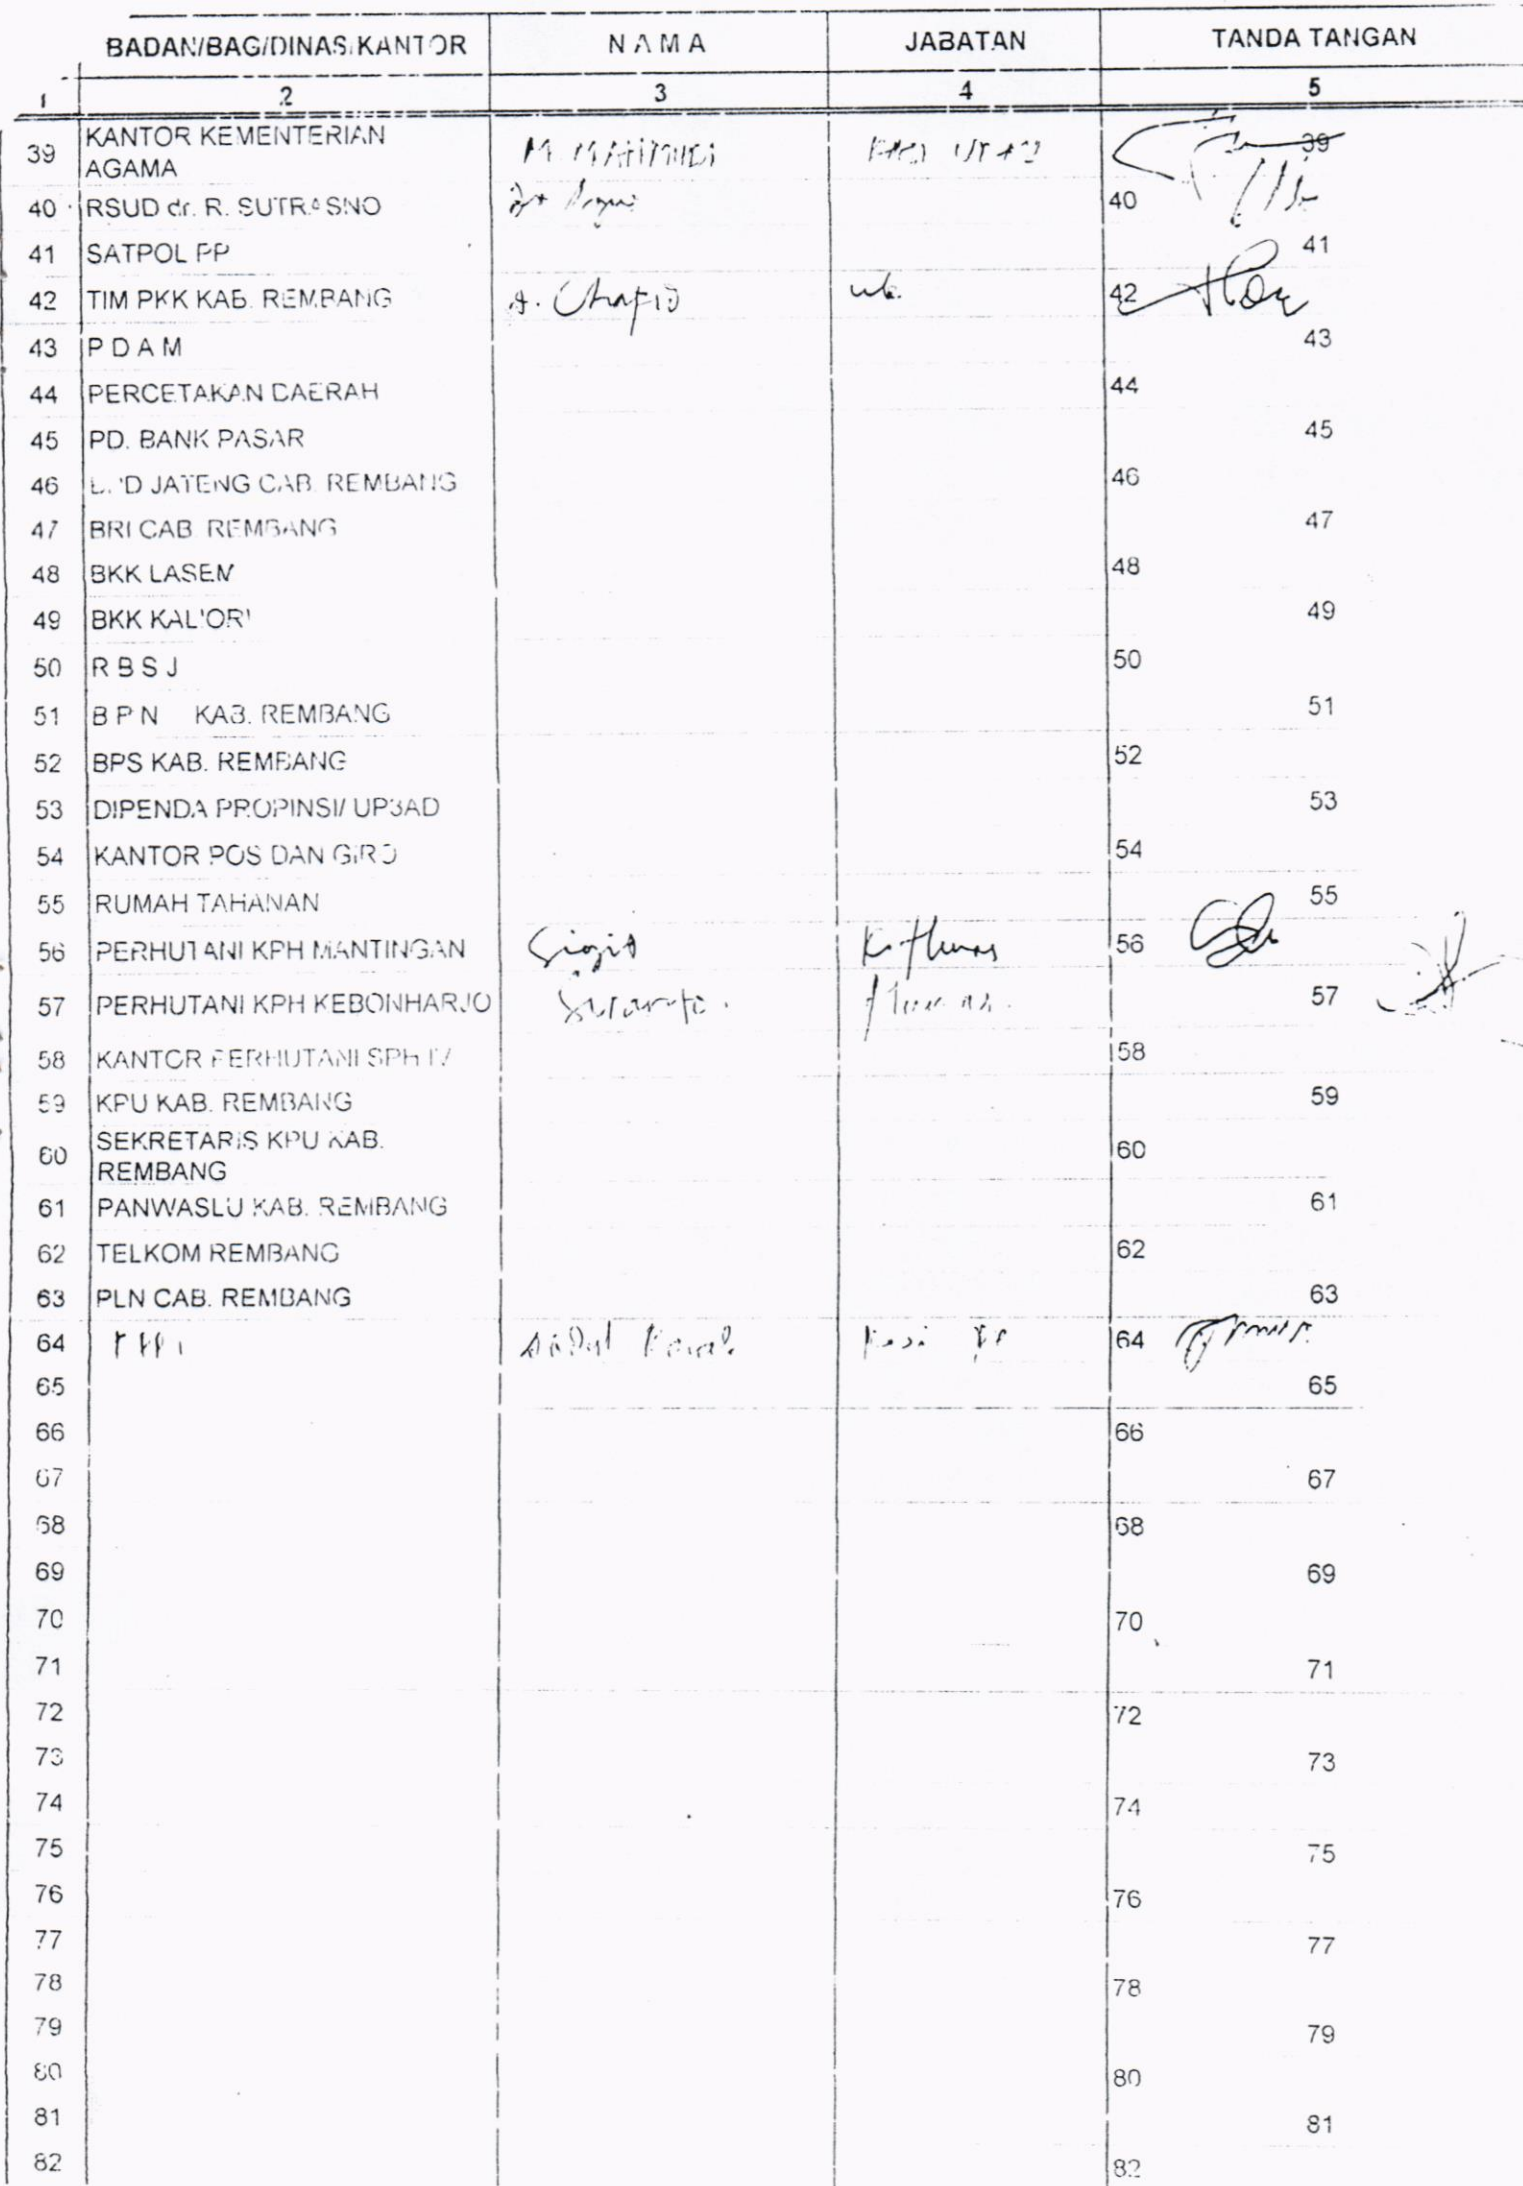 BADAN/BAG/DINAS/KANTOR NAMA JABATAN TANDA TANGAN
1 2 3 4 5
39 KANTOR KEMENTERIAN AGAMA M. 39
40 RSUD dr. R. SUTRASNO 40
41 SATPOL PP 41
42 TIM PKK KAB. REMBANG A. 42
43 P D A M 43
44 PERCETAKAN DAERAH 44
45 PD. BANK PASAR 45
46 JATENG CAB. REMBANG 46
47 BRI CAB. REMBANG 47
48 BKK LASEM 48
49 BKK KALIORI 49
50 R B S J 50
51 B P N KAB. REMBANG 51
52 BPS KAB. REMBANG 52
53 DIPENDA PROPINSI/ UP3AD 53
54 KANTOR POS DAN GIRO 54
55 RUMAH TAHANAN 55
56 PERHUTANI KPH MANTINGAN Sigit 56
57 PERHUTANI KPH KEBONHARJO 57
58 KANTOR PERHUTANI SPH IV 58
59 KPU KAB. REMBANG 59
60 SEKRETARIS KPU KAB. REMBANG 60
61 PANWASLU KAB. REMBANG 61
62 TELKOM REMBANG 62
63 PLN CAB. REMBANG 63
64 Abdul 64
65 65
66 66
67 67
68 68
69 69
70 70
71 71
72 72
73 73
74 74
75 75
76 76
77 77
78 78
79 79
80 80
81 81
82 82